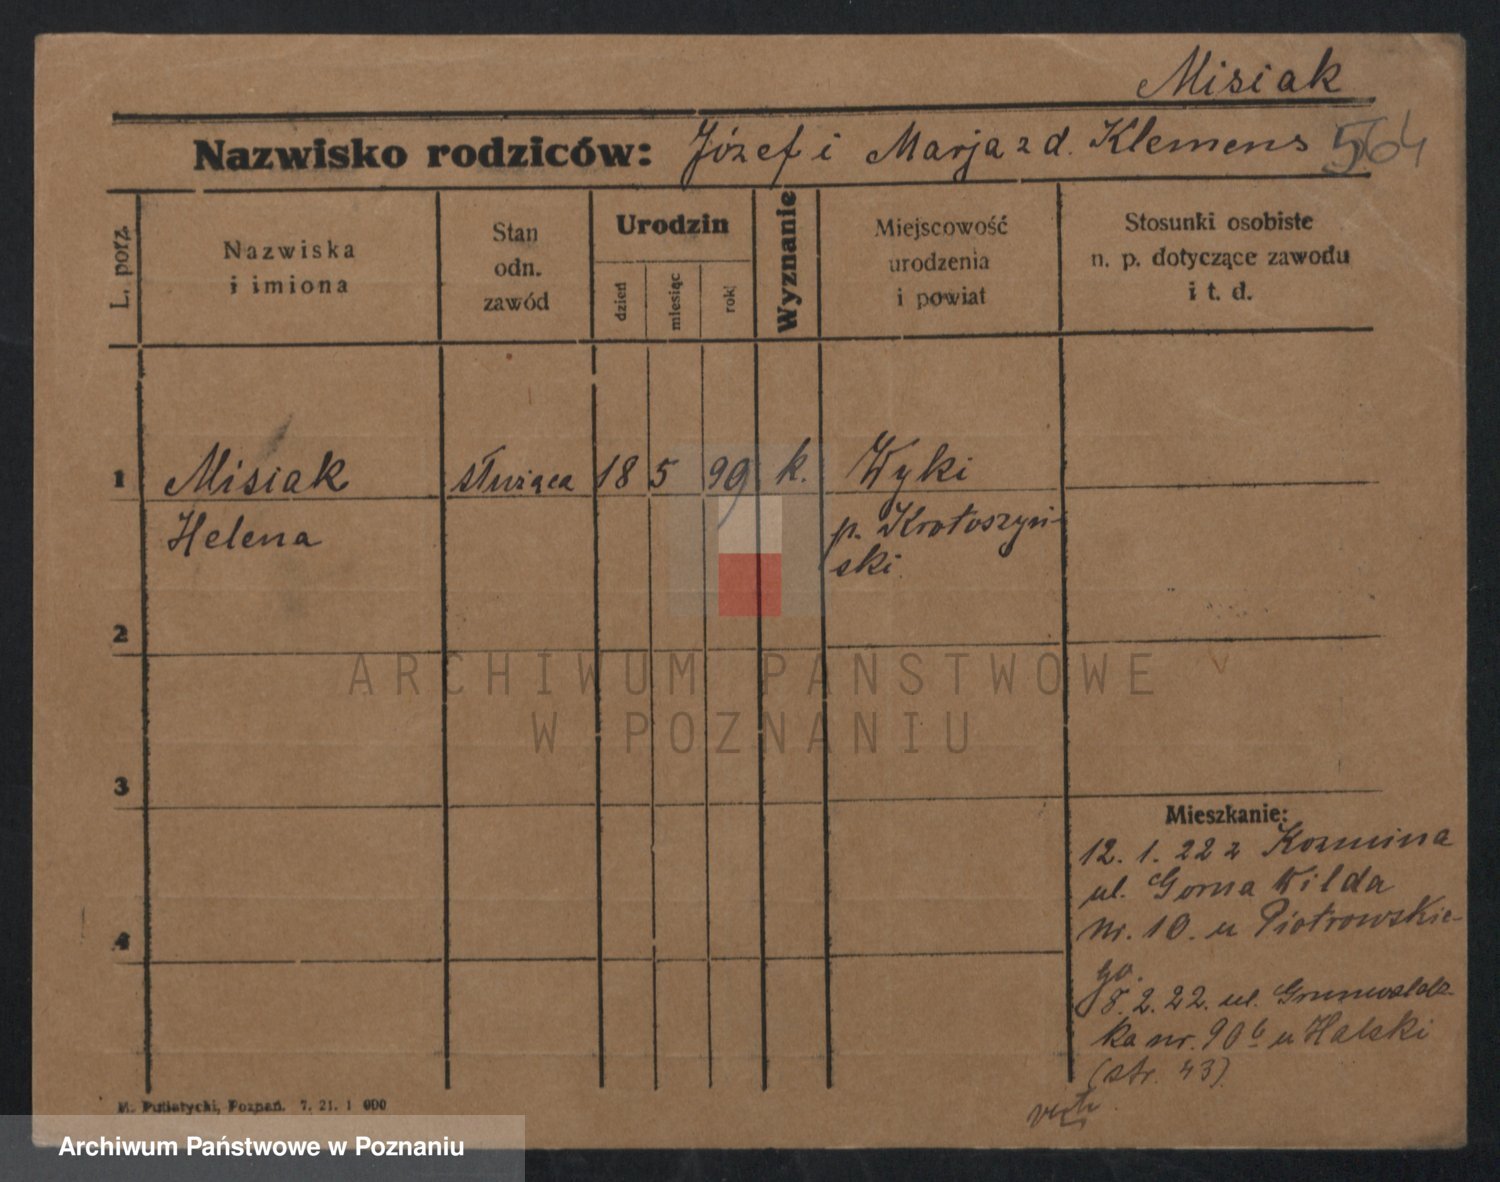 Misiak
Nazwisko rodziców: Józef i Marja z d. Klemens 564
L. porz.
Nazwiska
i imiona
Stan
odn.
zawód
Urodzin
dzień
miesiąc
rok
Wyznanie
Miejscowość
urodzenia
i powiat
Stosunki osobiste
n. p. dotyczące zawodu
i t. d.
1 Misiak służąca 18 5 99 k. Wyki
Helena p. Krotoszyń-
ski
2
3
4
Mieszkanie:
12. 1. 22 z Kozmina
ul. Gorna Wilda
nr. 10. u Piotrowskie-
go.
8. 2. 22. ul. Grunwaldz-
ka nr. 90b u Halski
(str. 43)
M. Putiatycki, Poznań. 7. 21. 1 000
ARCHIWUM PAŃSTWOWE
W POZNANIU
Archiwum Państwowe w Poznaniu